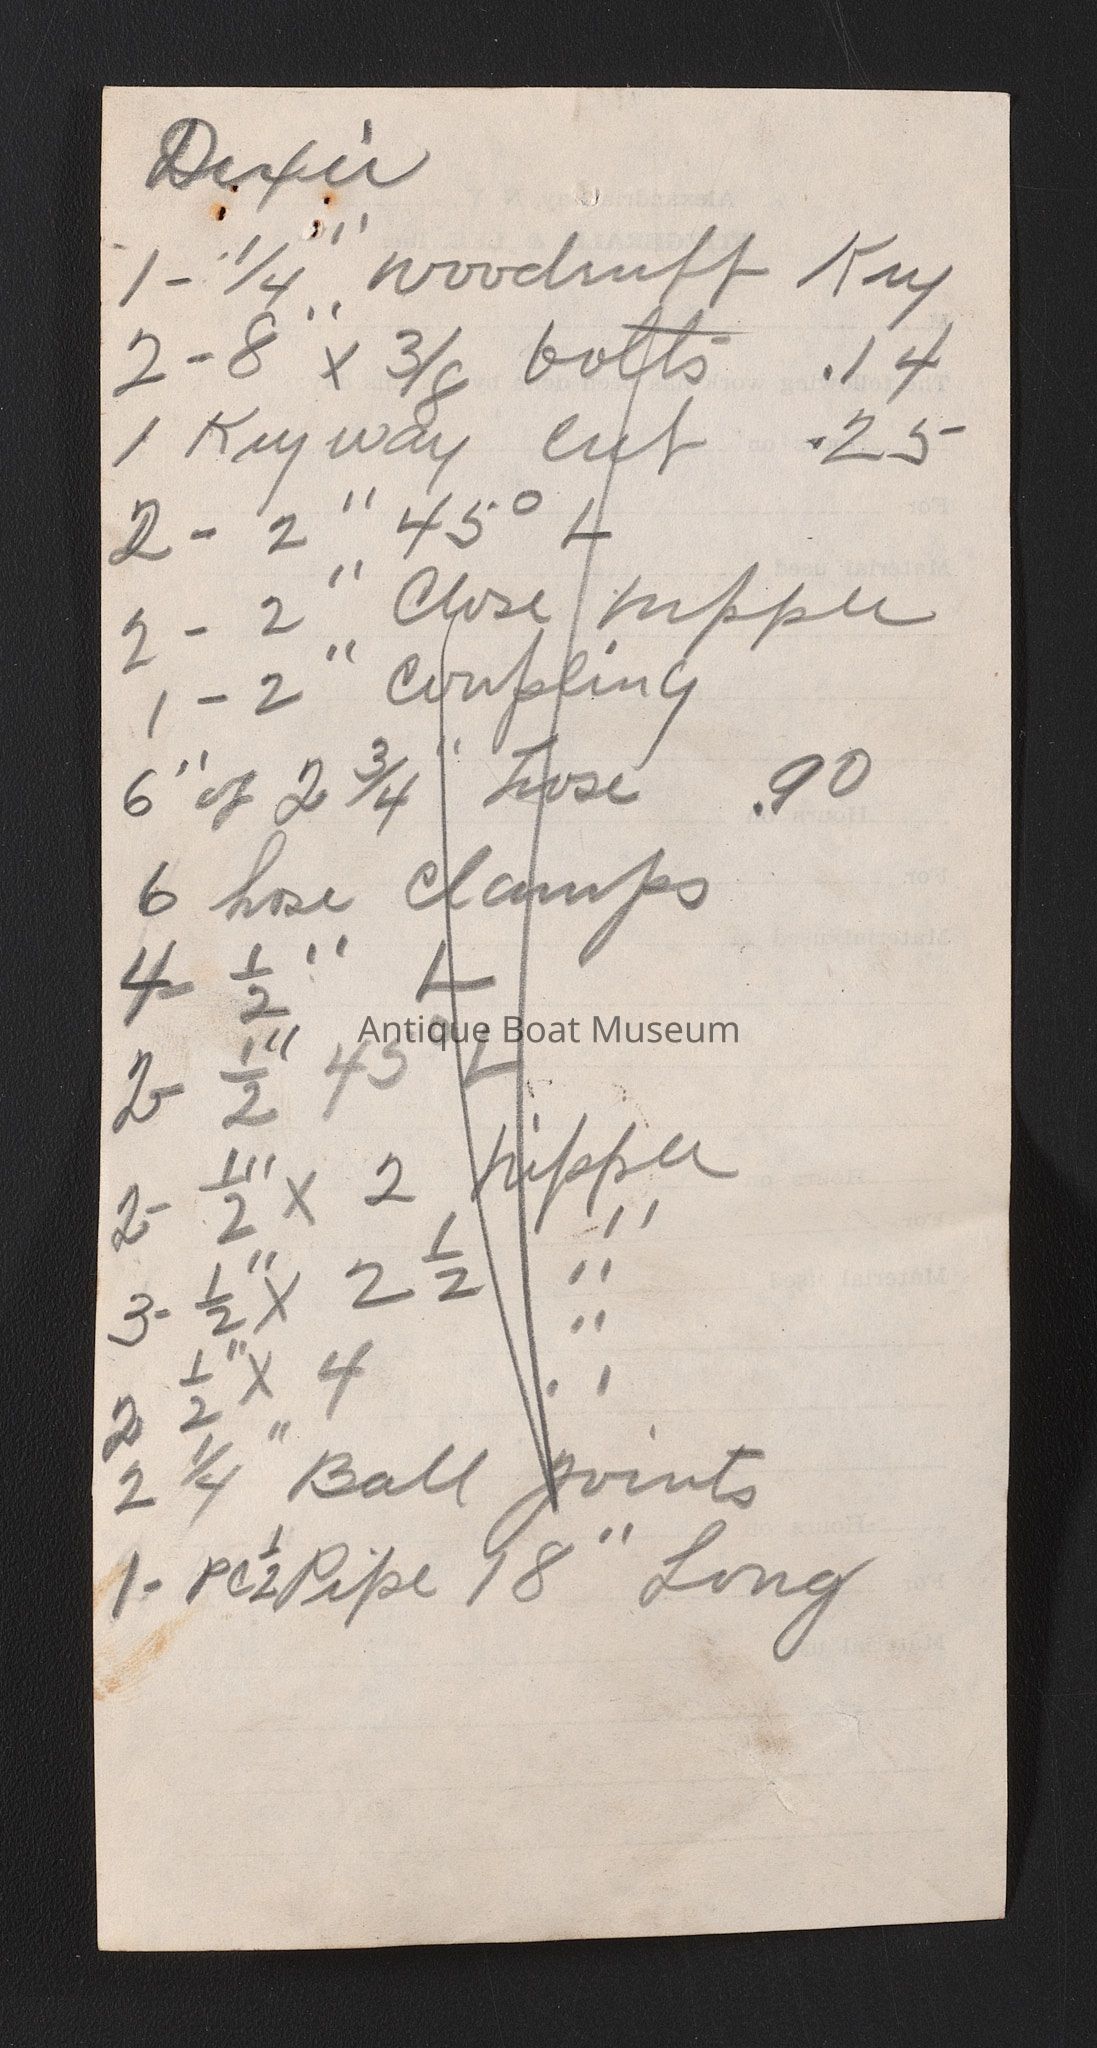 Dexter
1 - 1/4" woodruff Key
2 - 8" x 3/8 bolts .14
1 Keyway cut .25
2 - 2" 45° L
2 - 2" Close nipple
1 - 2" Coupling
6" of 2 3/4" hose .90
6 hose Clamps
4 - 1/2" L
Antique Boat Museum
2 - 1/2" 45° L
2 - 1/2" x 2 nipple
3 - 1/2" x 2 1/2 "
2 1/2" x 4 "
2 1/4" Ball joints
1 - pc 1/2 Pipe 18" Long